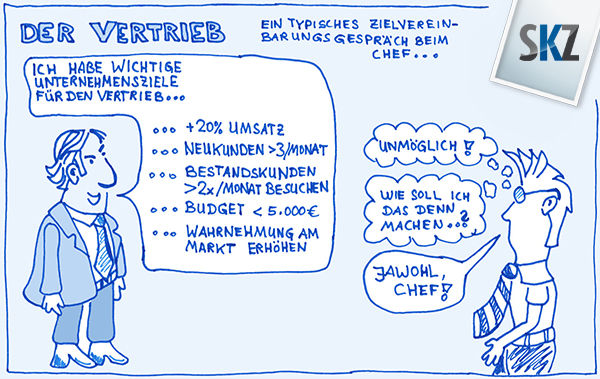 DER VERTRIEB
EIN TYPISCHES ZIELVEREIN-
BARUNGSGESPRÄCH BEIM
CHEF...
SKZ
ICH HABE WICHTIGE
UNTERNEHMENSZIELE
FÜR DEN VERTRIEB...
... +20% UMSATZ
... NEUKUNDEN >3/MONAT
... BESTANDSKUNDEN
>2x/MONAT BESUCHEN
... BUDGET < 5.000€
... WAHRNEHMUNG AM
MARKT ERHÖHEN
UNMÖGLICH!
WIE SOLL ICH
DAS DENN
MACHEN...?
JAWOHL,
CHEF!